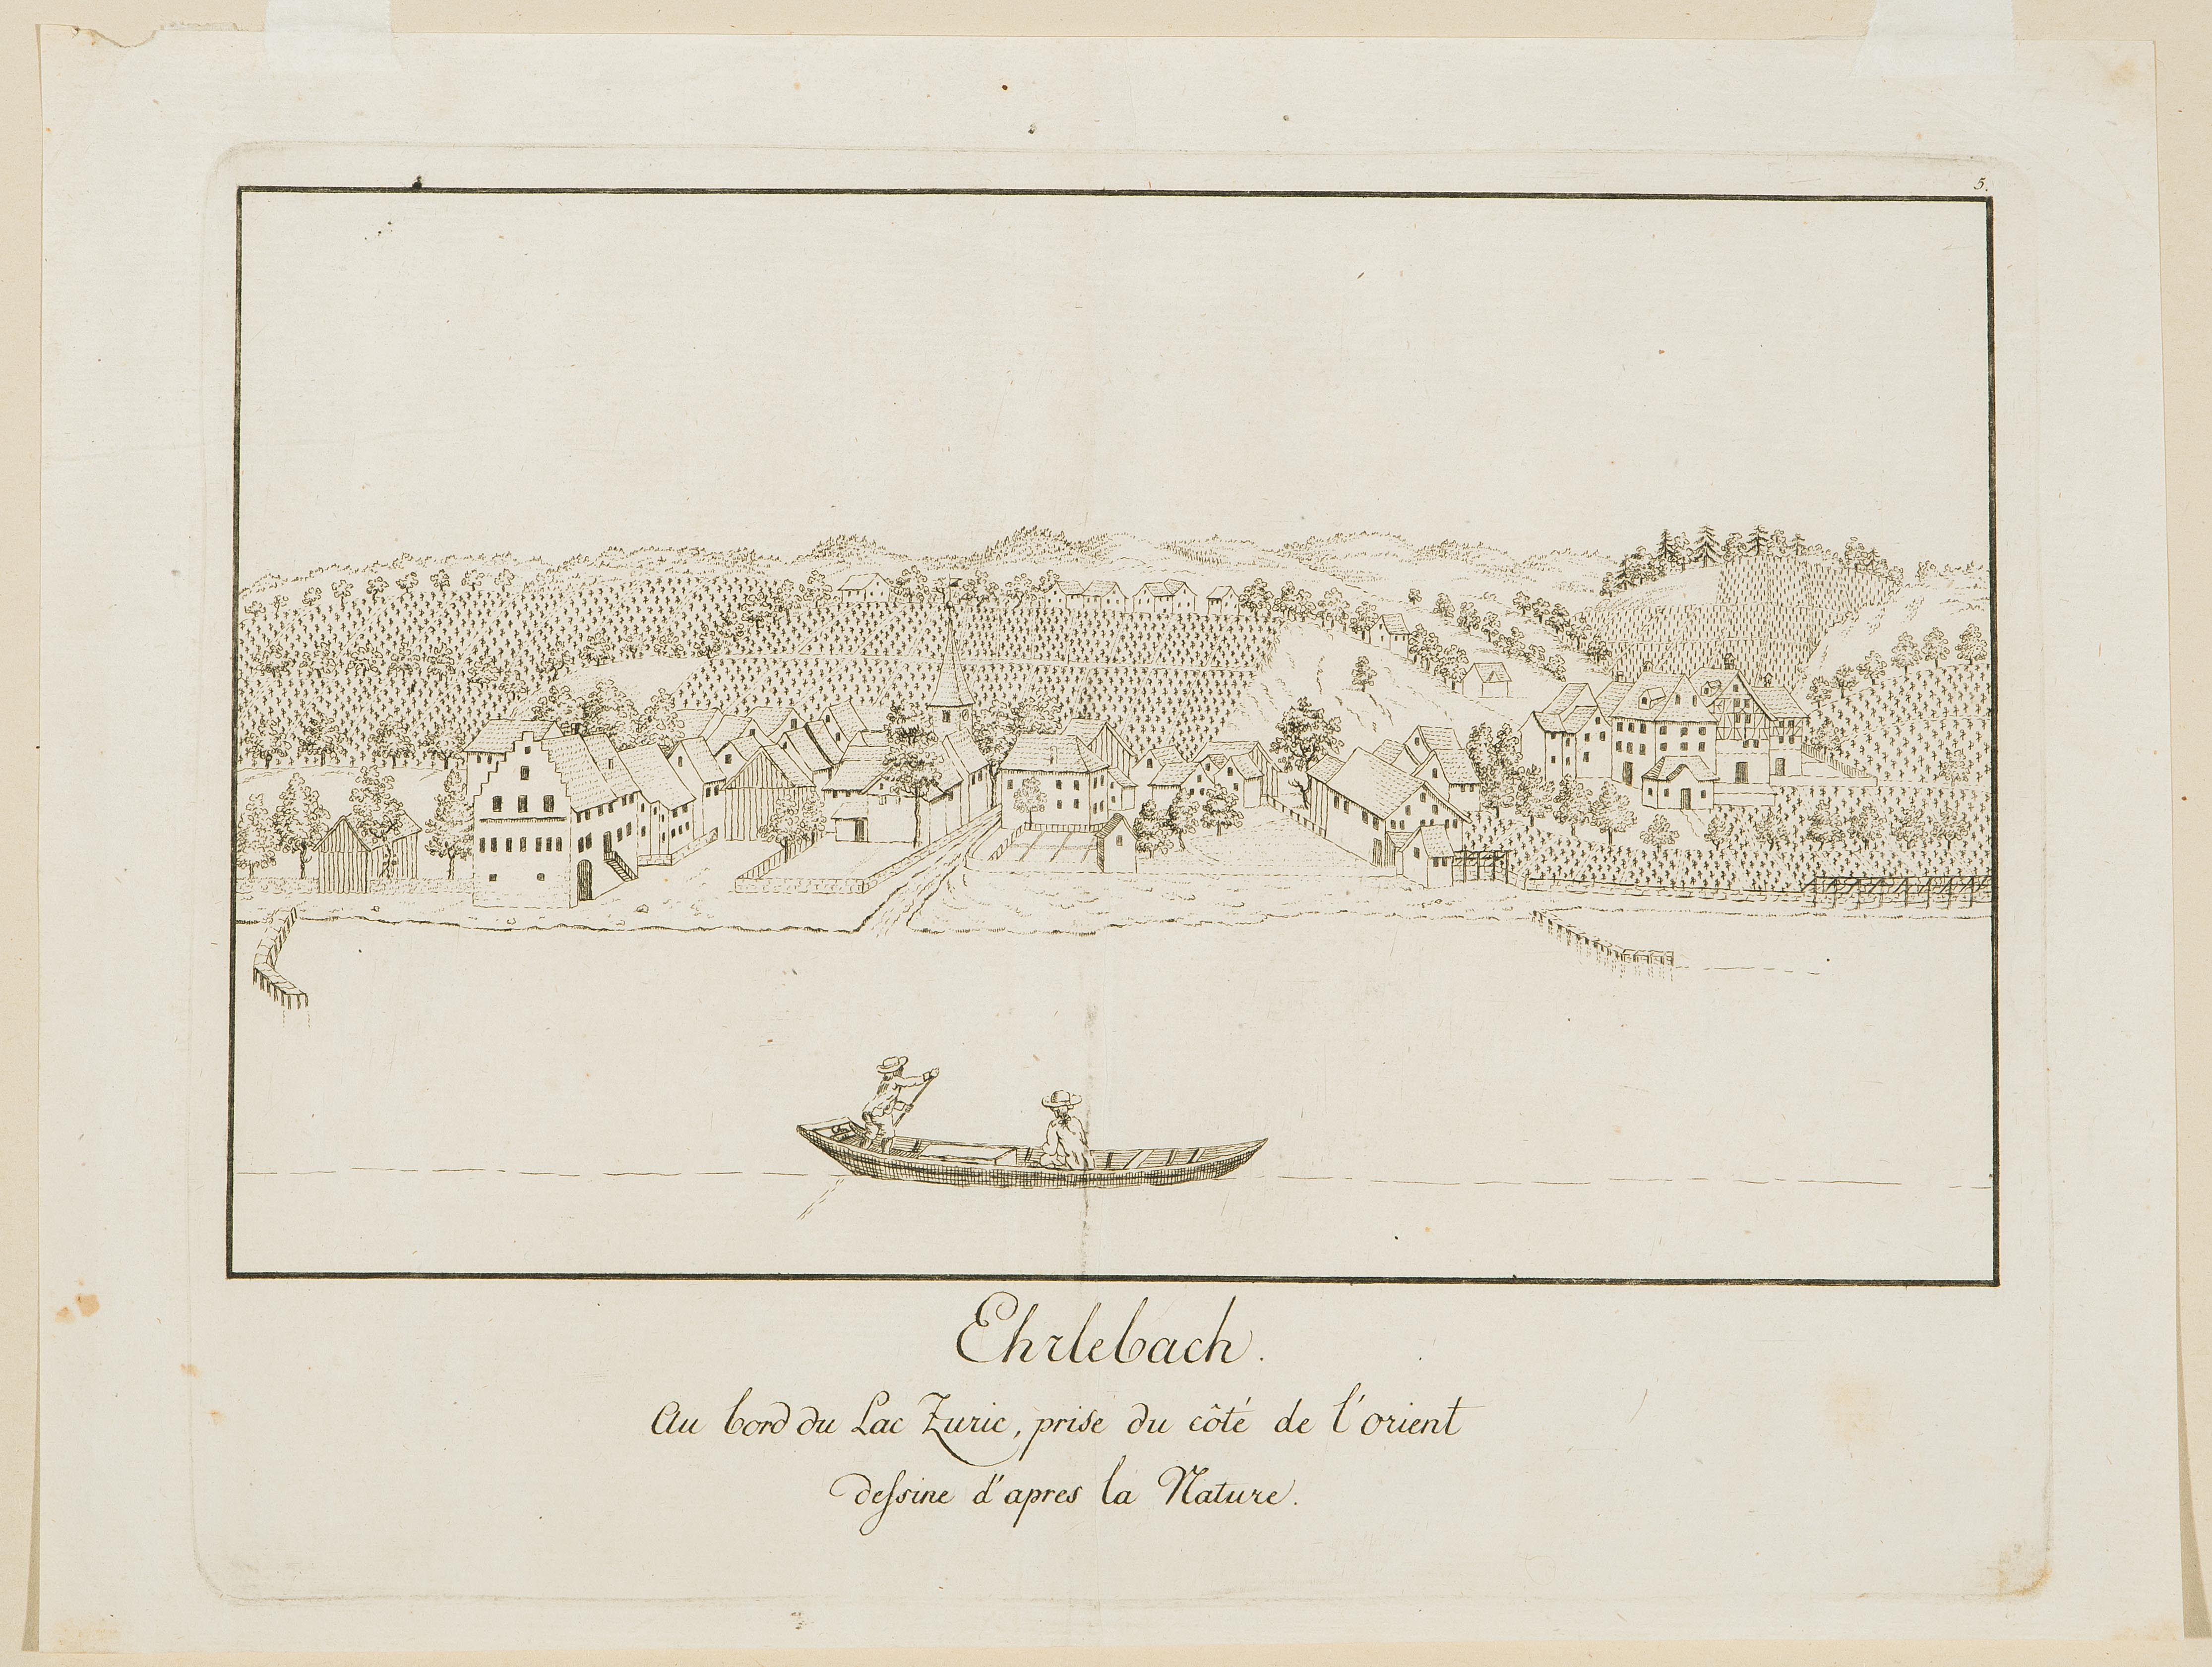 5.
Ehrlebach.
Au bord du Lac Zuric, prise du côté de l'orient
deſsine d'apres la Nature.